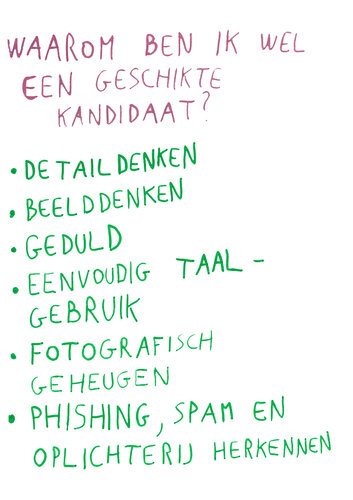 WAAROM BEN IK WEL
EEN GESCHIKTE
KANDIDAAT?
• DETAILDENKEN
• BEELDDENKEN
• GEDULD
• EENVOUDIG TAAL-
GEBRUIK
• FOTOGRAFISCH
GEHEUGEN
• PHISHING, SPAM EN
OPLICHTERIJ HERKENNEN